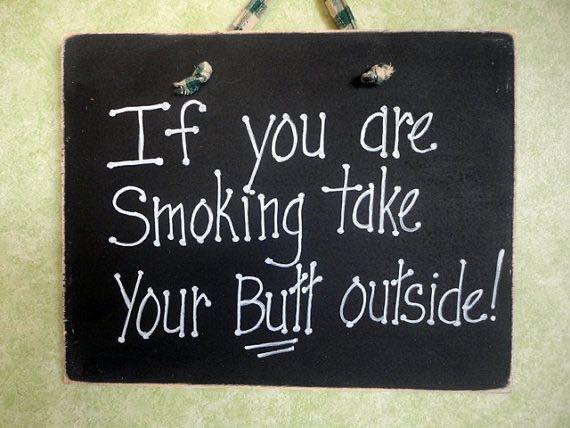 If you are
Smoking take
Your Butt outside!